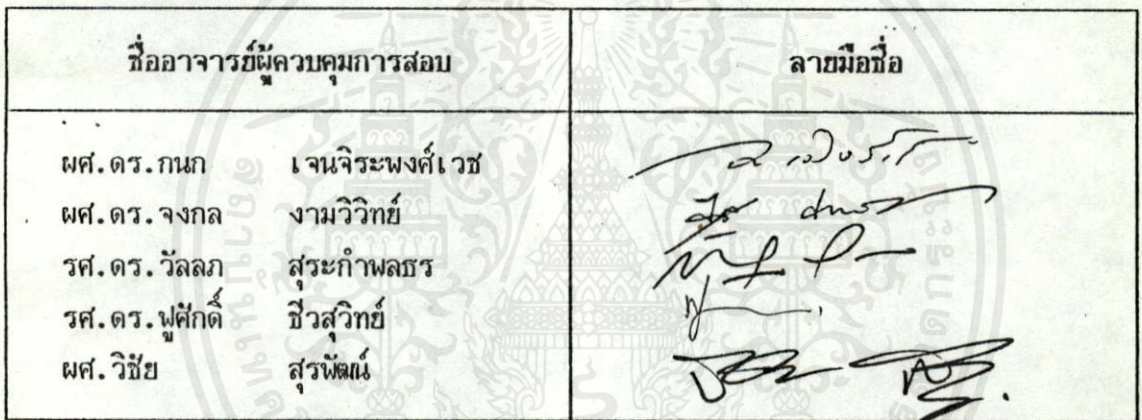 ชื่ออาจารย์ผู้ควบคุมการสอบ ลายมือชื่อ
ผศ.ดร.กนก เจนจิระพงศ์เวช
ผศ.ดร.จงกล งามวิวิทย์
รศ.ดร.วัลลภ สุระกำพลธร
รศ.ดร.ฟูศักดิ์ ชีวสุวิทย์
ผศ.วิชัย สุรพัฒน์